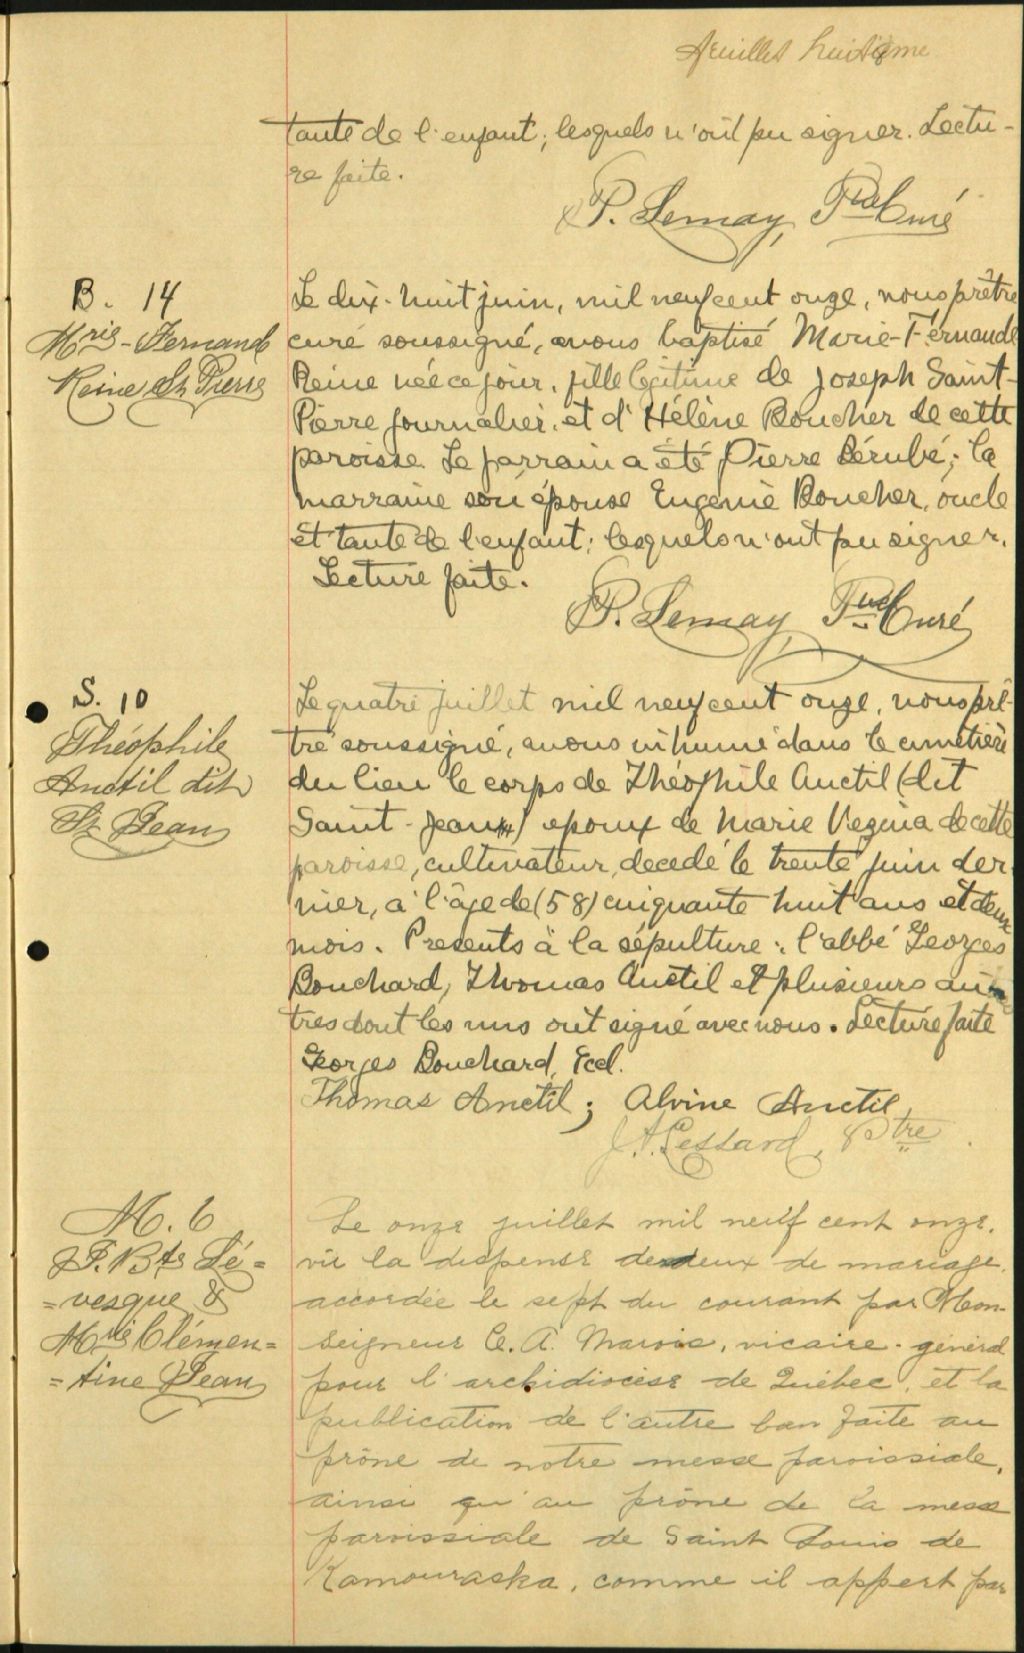 feuillet huitième
tante de l'enfant; lesquels n'ont pu signer. Lectu-
re faite.
P. Lemay, Ptre Curé
B. 14
Mrie-Fernande
Reine St Pierre
Le dix-huit juin, mil neuf cent onze, nous prêtre
curé soussigné, avons baptisé Marie-Fernande
Reine née ce jour, fille légitime de Joseph Saint-
Pierre journalier, et d'Hélène Boucher de cette
paroisse. Le parrain a été Pierre Bérubé; la
marraine son épouse Eugénie Boucher, oncle
et tante de l'enfant; lesquels n'ont pu signer.
Lecture faite.
P. Lemay Ptre Curé
S. 10
Théophile
Anctil dit
St Jean
Le quatre juillet mil neuf cent onze, nous prê-
tre soussigné, avons inhumé dans le cimetière
du lieu le corps de Théophile Anctil (dit
Saint-Jean) epoux de Marie Vezina de cette
paroisse, cultivateur, decedé le trente juin der-
nier, à l'âge de (58) cinquante huit ans et deux
mois. Presents à la sépulture: l'abbé Georges
Bouchard, Thomas Anctil et plusieurs au-
tres dont les uns ont signé avec nous. Lecture faite
Georges Bouchard, Eccl.
Thomas Anctil; Alvine Anctil
J.A. Lessard, Ptre.
M. 6
J. Bte Lé=
=vesque &
Mrie Clémen=
=tine Jean
Le onze juillet mil neuf cent onze,
vu la dispense de deux de mariage,
accordée le sept du courant par Mon-
seigneur C. A. Marois, vicaire-général
pour l'archidiocèse de Québec, et la
publication de l'autre ban faite au
prône de notre messe paroissiale,
ainsi qu'au prône de la messe
paroissiale de Saint Louis de
Kamouraska, comme il appert par